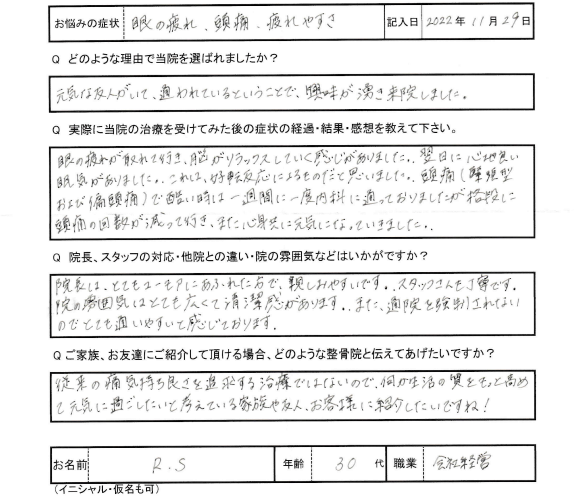 お悩みの症状 眼の疲れ、頭痛、疲れやすさ 記入日 2022年11月29日
Q どのような理由で当院を選ばれましたか？
元気な友人がいて、通われているということで、興味が湧き来院しました。
Q 実際に当院の治療を受けてみた後の症状の経過・結果・感想を教えて下さい。
眼の疲れが取れて行き、脳がリラックスしていく感じがありました。翌日に心地良い
眠気がありました。これは、好転反応によるものだと思いました。頭痛(緊張型
および偏頭痛)で酷い時は一週間に一度内科に通っておりましたが格段に
頭痛の回数が減って行き、また心身共に元気になっていきました。
Q 院長、スタッフの対応・他院との違い・院の雰囲気などはいかがですか？
院長は、とてもユーモアにあふれた方で、親しみやすいです。スタッフさんも丁寧です。
院の雰囲気はとても広くて清潔感があります。また、通院を強制されない
のでとても通いやすいと感じております。
Qご家族、お友達にご紹介して頂ける場合、どのような整骨院と伝えてあげたいですか？
従来の痛気持ち良さを追求する治療ではないので、何か生活の質をもっと高め
て元気に過ごしたいと考えている家族や友人、お客様に紹介したいですね！
お名前 R.S 年齢 30代 職業 会社経営
(イニシャル・仮名も可)